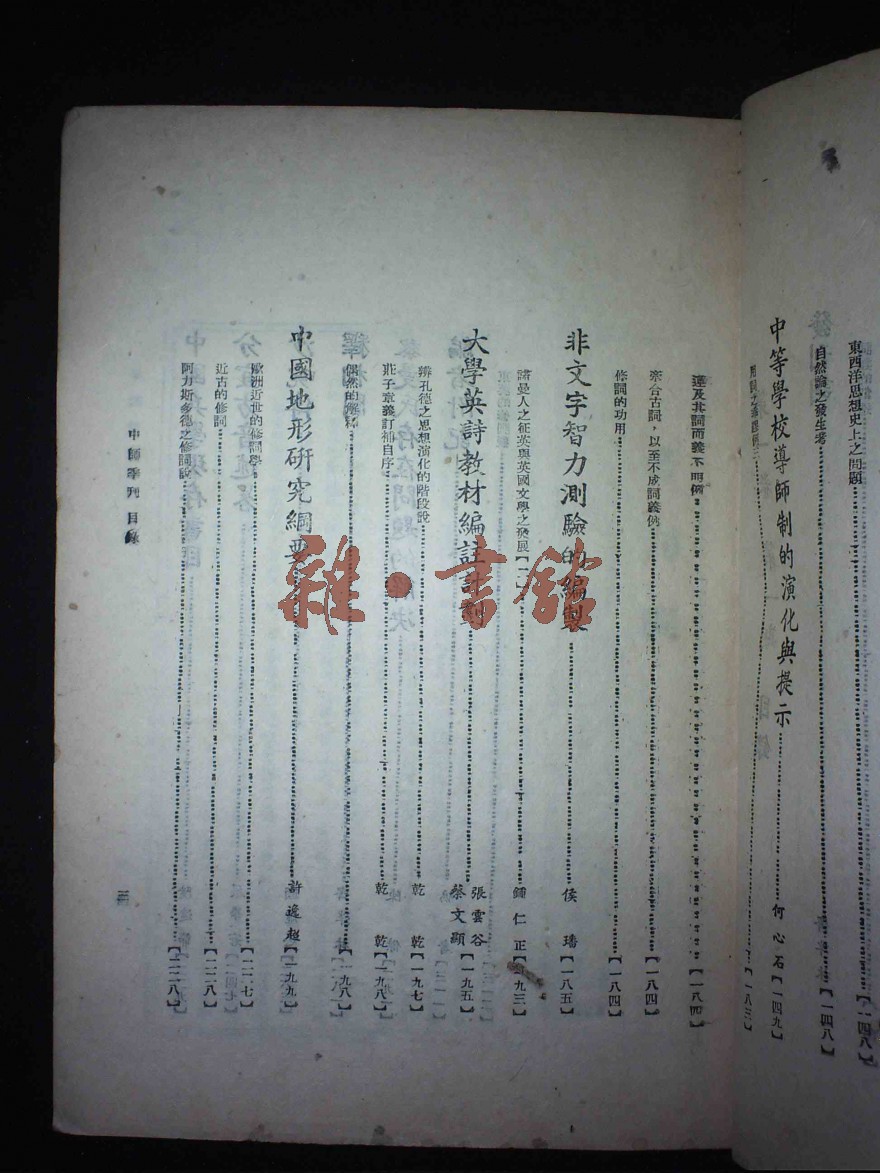 東西洋思想史上之問題【一四八】
自然論之發生考【一四八】
中等學校導師制的演化與提示 何心石【一四九】
【一八三】
【一八四】
【一八四】
修詞的功用【一八四】
非文字智力測驗的編製 侯璠【一八五】
諾曼人之征英與英國文學之發展 鍾仁正【一九三】
大學英詩教材編註計劃 張雲谷 蔡文顯【一九五】
辨孔德之思想演化的階段說 乾乾【一九七】
莊子章義訂補自序 乾乾【一九八】
偶然的解釋【一九八】
中國地形研究綱要 許逸超【一九九】
歐洲近世的修詞學【二二七】
近古的修詞【二二八】
阿力斯多德之修詞說【二二八】
中師季刊 目錄
三
雜·書館